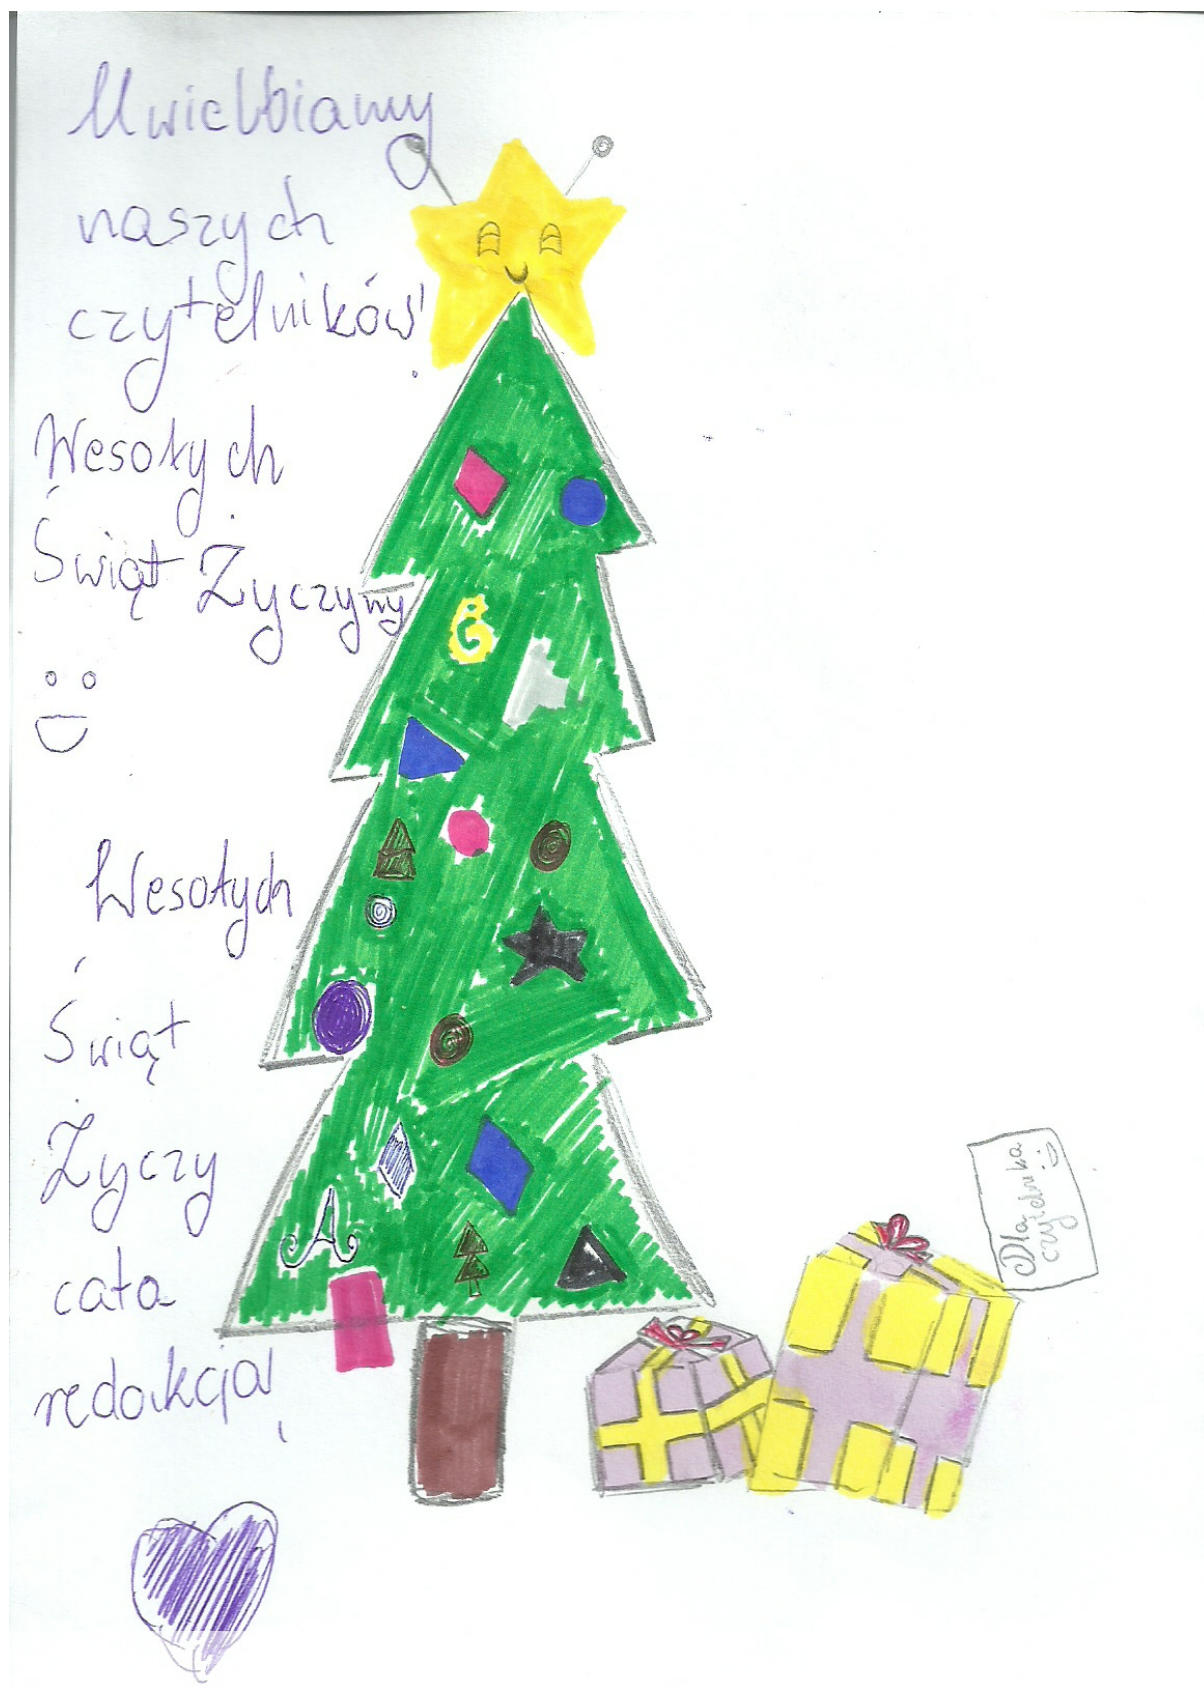 Uwielbiamy
naszych
czytelników!
Wesołych
Świąt Życzymy
Wesołych
Świąt
Życzy
cała
redakcja!
Dla
czytelnika